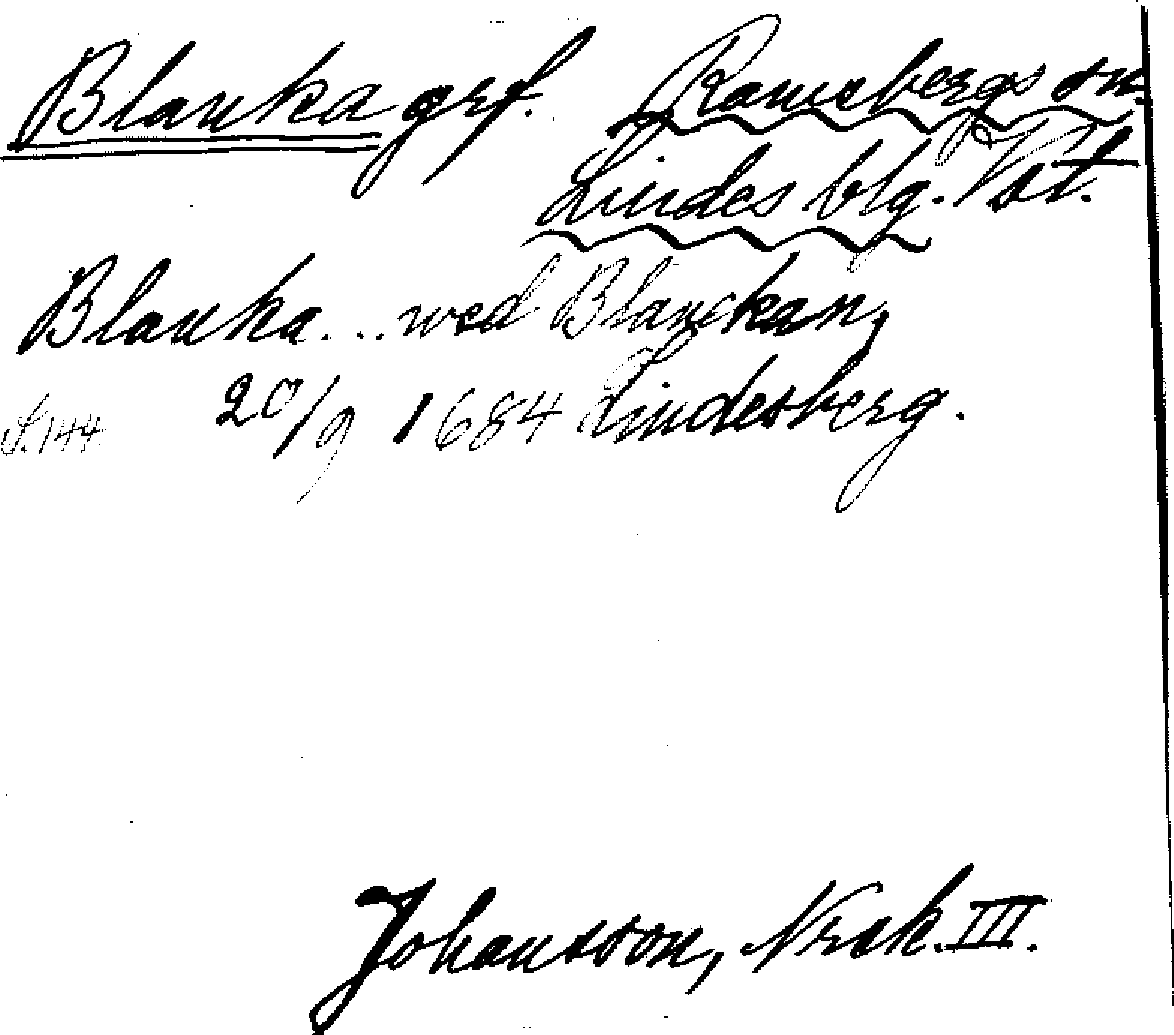 Blanka grf. Ramsbergs sn.
Lindes blg. Vst.
Blanka... wed Blanckan,
S. 144 20/9 1684 Lindesberg.
Johansson, Noraskog III.